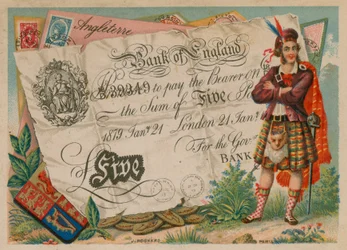 Angleterre
Bank of England
39349
to pay the Bearer on
the Sum of Five
1879 Jan.y 21 London 21 Jan.y
For the Gov.
BANK
Five